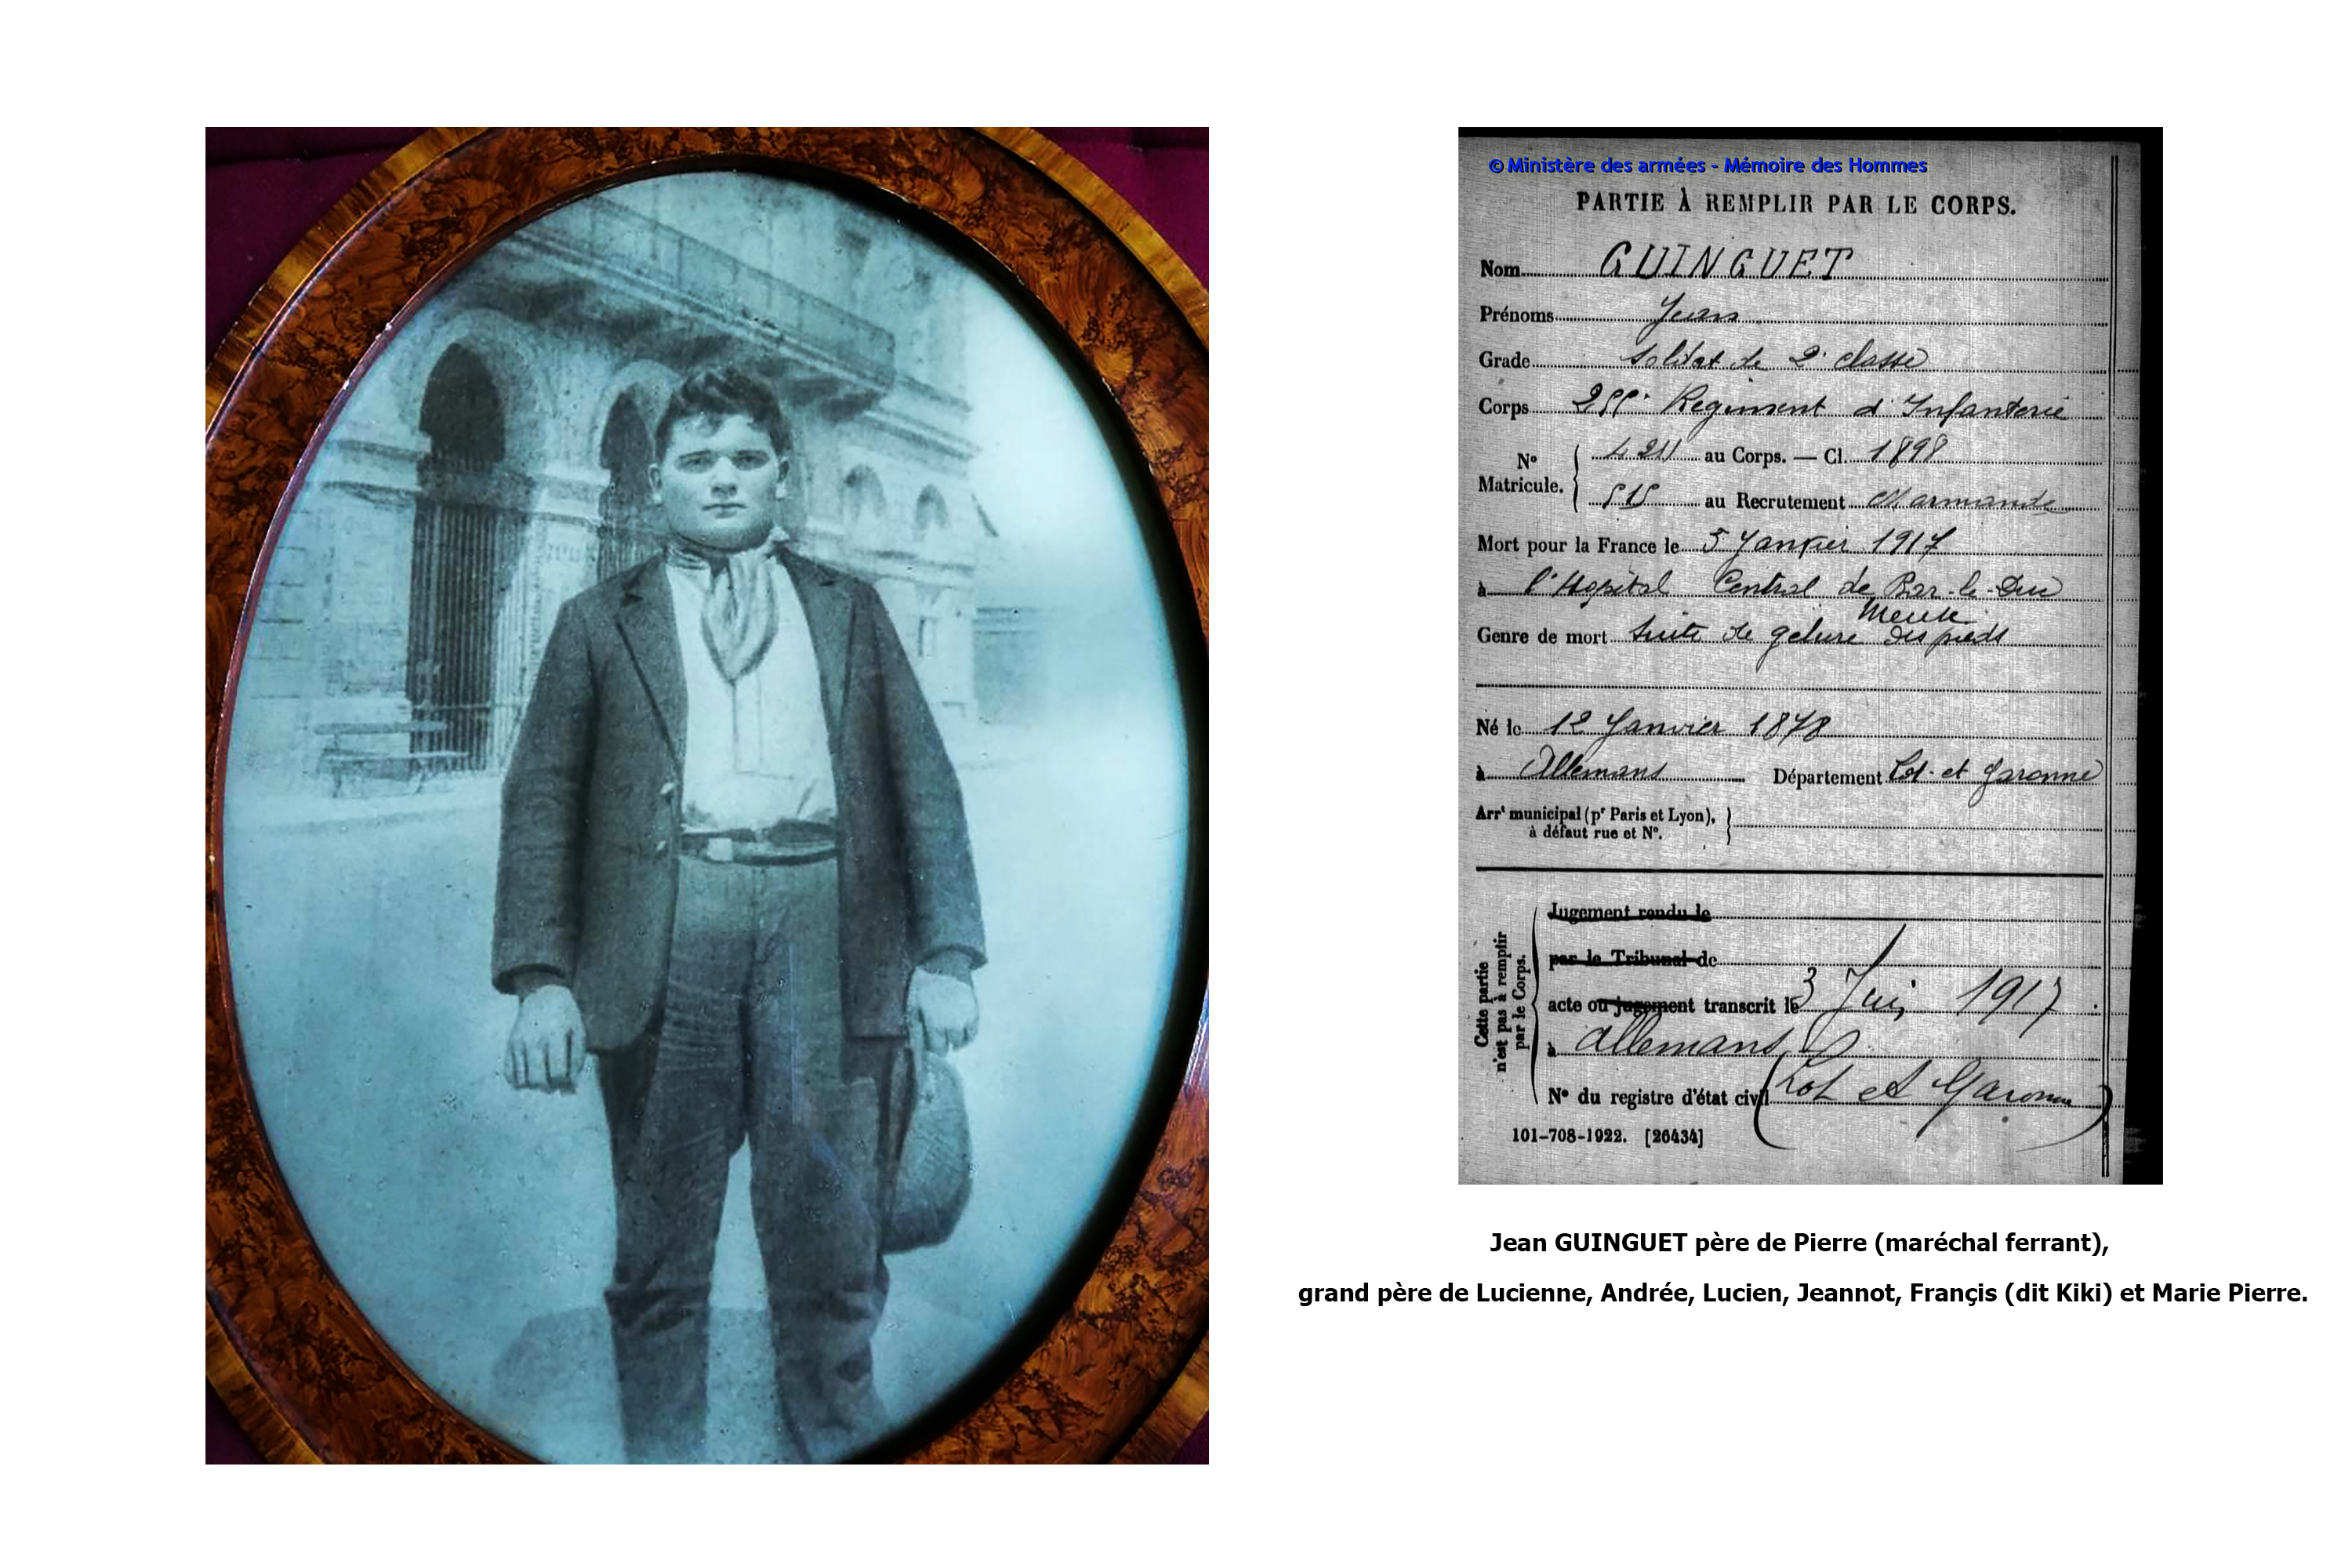 © Ministère des armées - Mémoire des Hommes
PARTIE À REMPLIR PAR LE CORPS.
Nom GUINGUET
Prénoms Jean
Grade Soldat de 2e classe
Corps Régiment d'Infanterie
N° Matricule. { 4211 au Corps. — Cl. 1898
515 au Recrutement Marmande
Mort pour la France le 5 Janvier 1917
à l'Hopital Central de Bar-le-Duc
Meuse
Genre de mort Suite de gelure des pieds
Né le 12 Janvier 1878
à Allemans Département Lot-et-Garonne
Arrt municipal (pr Paris et Lyon),
à défaut rue et N°.
Cette partie
n'est pas à remplir
par le Corps.
Jugement rendu le
par le Tribunal de
acte ou jugement transcrit le 3 Juin 1917
à Allemans
N° du registre d'état civil (Lot et Garonne)
101-708-1922. [26434]
Jean GUINGUET père de Pierre (maréchal ferrant),
grand père de Lucienne, Andrée, Lucien, Jeannot, Françis (dit Kiki) et Marie Pierre.